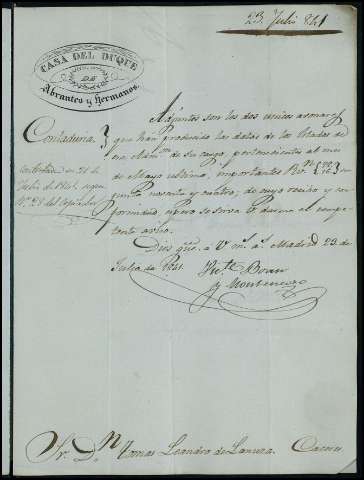 23 Julio 841
CASA DEL DUQUE
DE
Abrantes y Hermanos.
Contaduria.
Adjuntos son los dos unicos
que han producido las datas de los Estados de
esa Admon. de su cargo, pertenecientes al mes
de Mayo ultimo, importantes Rs. vn.
cuenta noventa y cuatro, de cuyo recibo y con-
formidad espero se sirva V. darme el compe-
tente aviso.
Contestada en 31 de
Julio de 1841, segun
Nº 28 del copiador
Dios gue. a V. ms. as. Madrid 23 de
Julio de 1841.
Vte. Bovar
y Montenegro
Sr. Dn. Tomas Leandro de Lanuza. Caceres